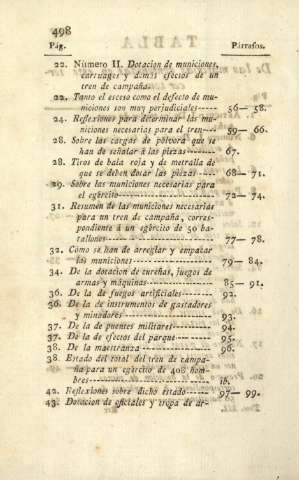 498
Pág. Párrafos.
22. Número II. Dotacion de municiones,
carruages y demás efectos de un
tren de campaña.
22. Tanto el esceso como el defecto de mu-
niciones son muy perjudiciales----- 56— 58.
24. Reflexiones para determinar las mu-
niciones necesarias para el tren--- 59— 66.
28. Sobre las cargas de pólvora que se
han de señalar á las piezas------- 67.
28. Tiros de bala roja y de metralla de
que se deben dotar las piezas ---- 68— 71.
29. Sobre las municiones necesarias para
el egército--------------------- 72— 74.
31. Resumen de las municiones necesarias
para un tren de campaña, corres-
pondiente á un egército de 50 ba-
tallones----------------------- 77— 78.
32. Cómo se han de arreglar y empacar
las municiones ----------------- 79— 84.
34. De la dotacion de cureñas, juegos de
armas y máquinas--------------- 85— 91.
36. De la de fuegos artificiales------- 92.
36. De la de instrumentos de gastadores
y minadores-------------------- 93.
37. De la de puentes militares-------- 94.
37. De la de efectos del parque------- 95.
38. De la maestranza --------------- 96.
38. Estado del total del tren de campa-
ña para un egército de 408 hom-
bres-------------------------- ib.
42. Reflexiones sobre dicho estado----- 97— 99.
43. Dotacion de oficiales y tropa de ar-